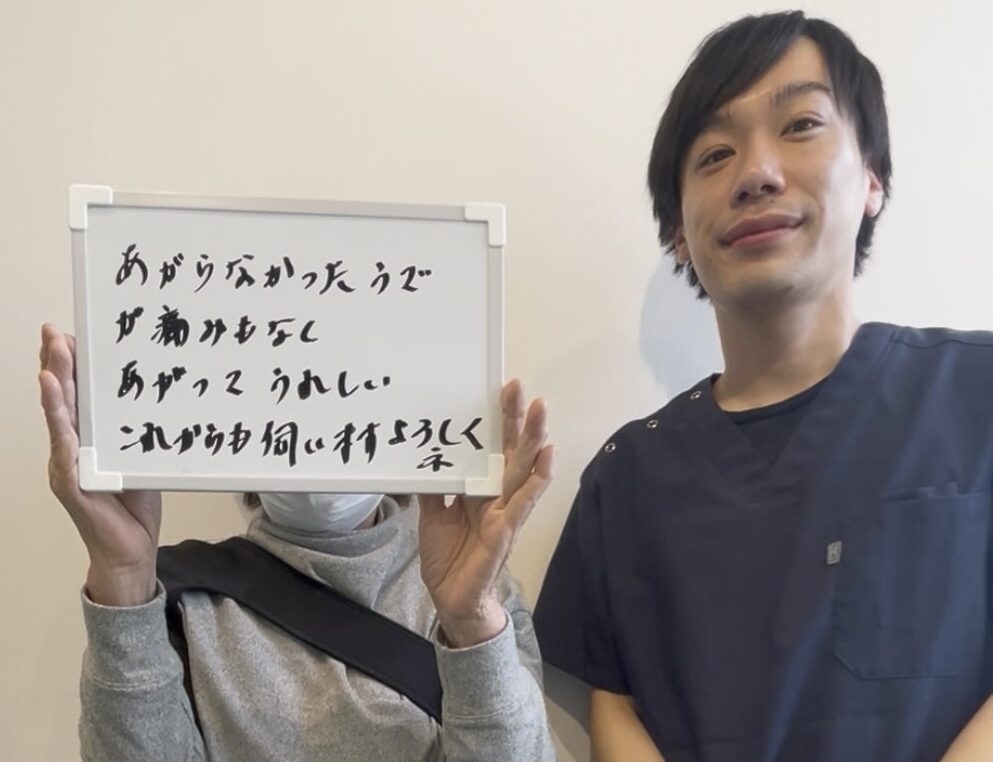 あがらなかったうで
が痛みもなく
あがってうれしい
これからも伺いますよろしく
ネ